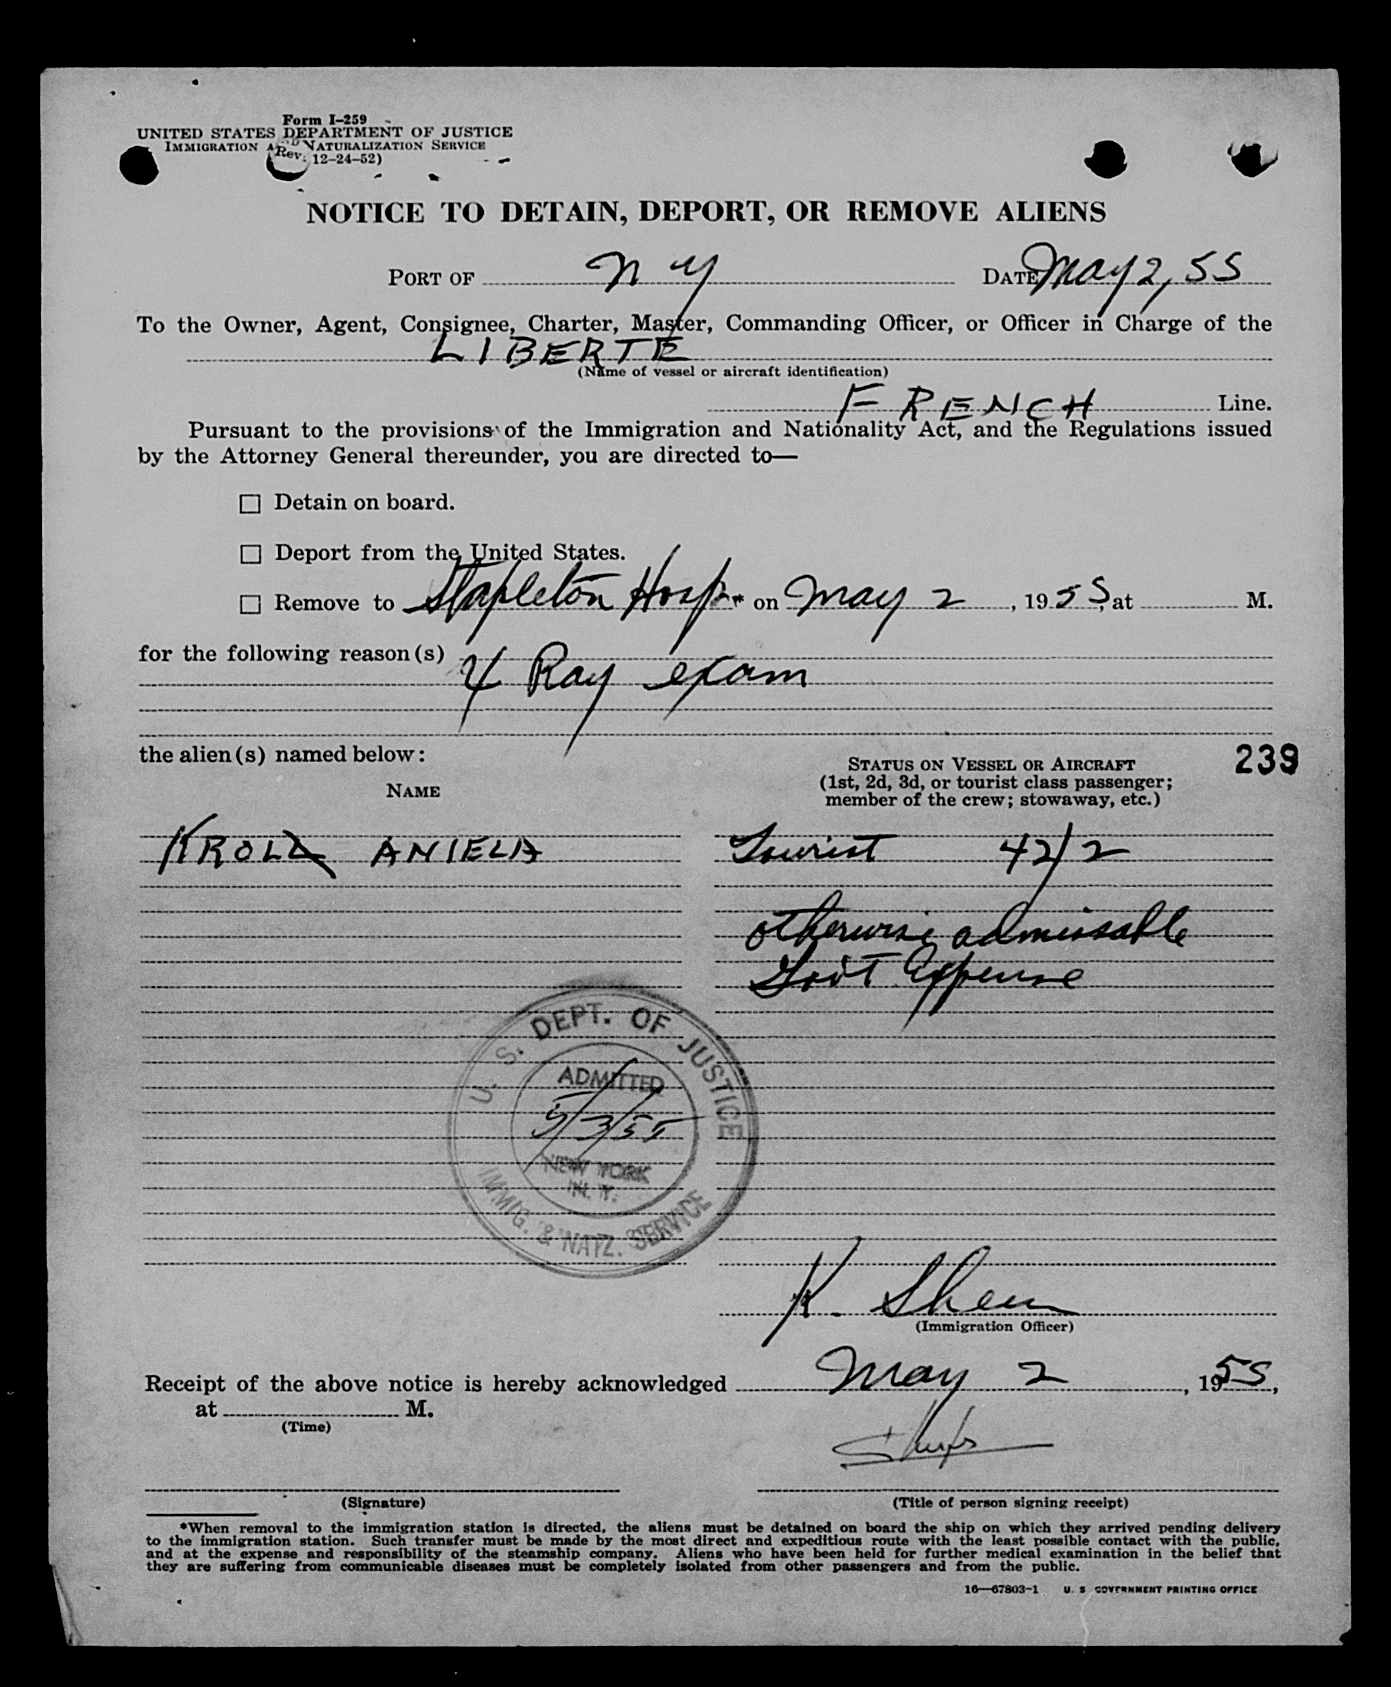 Form I-259
UNITED STATES DEPARTMENT OF JUSTICE
IMMIGRATION AND NATURALIZATION SERVICE
(Rev. 12-24-52)
NOTICE TO DETAIN, DEPORT, OR REMOVE ALIENS
PORT OF N Y DATE May 2, 55
To the Owner, Agent, Consignee, Charter, Master, Commanding Officer, or Officer in Charge of the
LIBERTE
(Name of vessel or aircraft identification)
FRENCH Line.
Pursuant to the provisions of the Immigration and Nationality Act, and the Regulations issued
by the Attorney General thereunder, you are directed to—
☐ Detain on board.
☐ Deport from the United States.
☐ Remove to Stapleton Hosp* on May 2, 1955, at M.
for the following reason(s)
X Ray exam
the alien(s) named below:
STATUS ON VESSEL OR AIRCRAFT
(1st, 2d, 3d, or tourist class passenger;
member of the crew; stowaway, etc.)
239
NAME
KROL ANIELA Tourist 42/2
otherwise admissable
Gov't Expense
U. S. DEPT. OF JUSTICE
ADMITTED
5/3/55
NEW YORK
N. Y.
IMMIG. & NATZ. SERVICE
K. Shea
(Immigration Officer)
Receipt of the above notice is hereby acknowledged May 2, 1955,
at M.
(Time)
(Signature) (Title of person signing receipt)
*When removal to the immigration station is directed, the aliens must be detained on board the ship on which they arrived pending delivery
to the immigration station. Such transfer must be made by the most direct and expeditious route with the least possible contact with the public,
and at the expense and responsibility of the steamship company. Aliens who have been held for further medical examination in the belief that
they are suffering from communicable diseases must be completely isolated from other passengers and from the public.
16—67803-1 U. S. GOVERNMENT PRINTING OFFICE